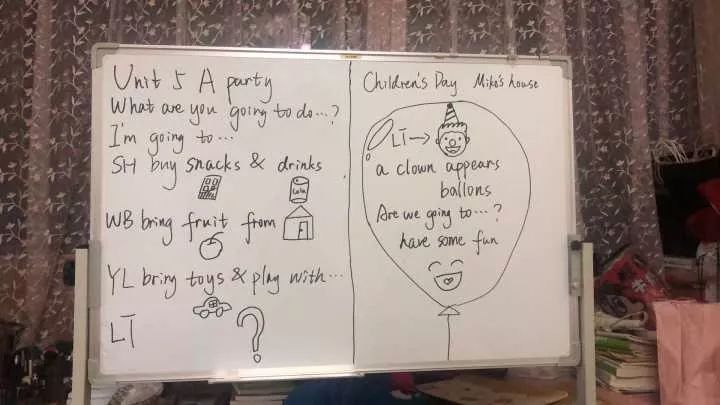 Unit 5 A party
What are you going to do...?
I'm going to...
SH buy snacks & drinks
cola
WB bring fruit from
YL bring toys & play with...
LT
?
Children's Day Mike's house
LT →
a clown appears
ballons
Are we going to...?
have some fun